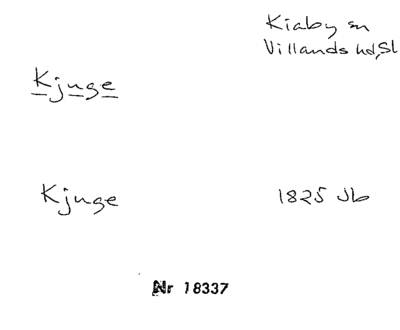 Kiaby sn
Villands hd, Sk
Kjuge
Kjuge
1825 Jb
Nr 18337